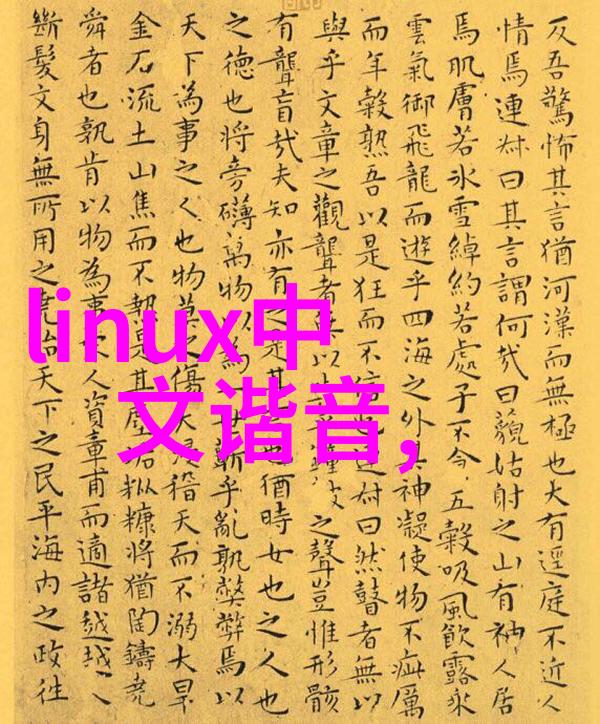 反吾驚怖其言猶河漢而無極也大有逕庭不近人
情焉連叔曰其言謂何哉曰藐姑射之山有神人居
焉肌膚若冰雪綽約若處子不食五穀吸風飲露乘
雲氣御飛龍而遊乎四海之外其神凝使物不疵厲
而年穀熟吾以是狂而不信也連叔曰然瞽者無以
與乎文章之觀聾者無以之聲豈惟形骸
有聾盲哉夫知亦有之是其也猶時女也之人也
之德也將旁礴萬物以世蘄乎亂孰弊弊焉以
天下為事之人也物莫之傷大浸稽天而不溺大旱
金石流土山焦而不熱是其塵垢粃糠將猶陶鑄堯
舜者也孰肯以物為事人資章甫而適諸越越
斷髮文身無所用之堯治天下之民平海內之政往
linux中
文谐音,